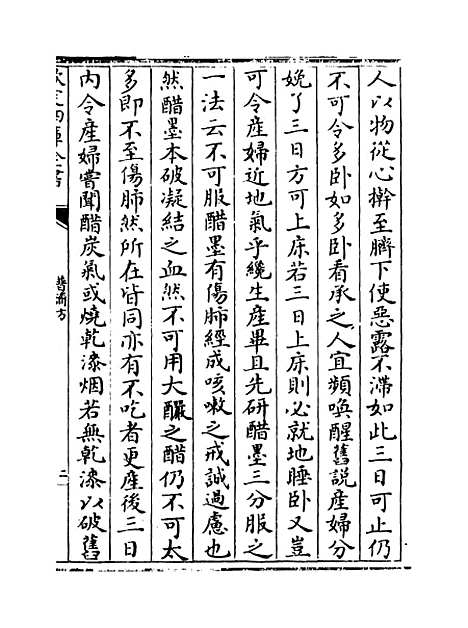 人以物從心擀至臍下使惡露不滯如此三日可止仍
不可令多卧如多卧看承之人宜頻喚醒舊説産婦分
娩了三日方可上床若三日上床則必就地睡卧又豈
可令産婦近地氣乎纔生産畢且先研醋墨三分服之
一法云不可服醋墨有傷肺經成咳嗽之戒誠過慮也
然醋墨本破凝結之血然不可用大釅之醋仍不可太
多即不至傷肺然所在皆同亦有不吃者更産後三日
内令産婦嘗聞醋炭氣或燒乾漆烟若無乾漆以破舊
欽定四庫全書
普濟方
二